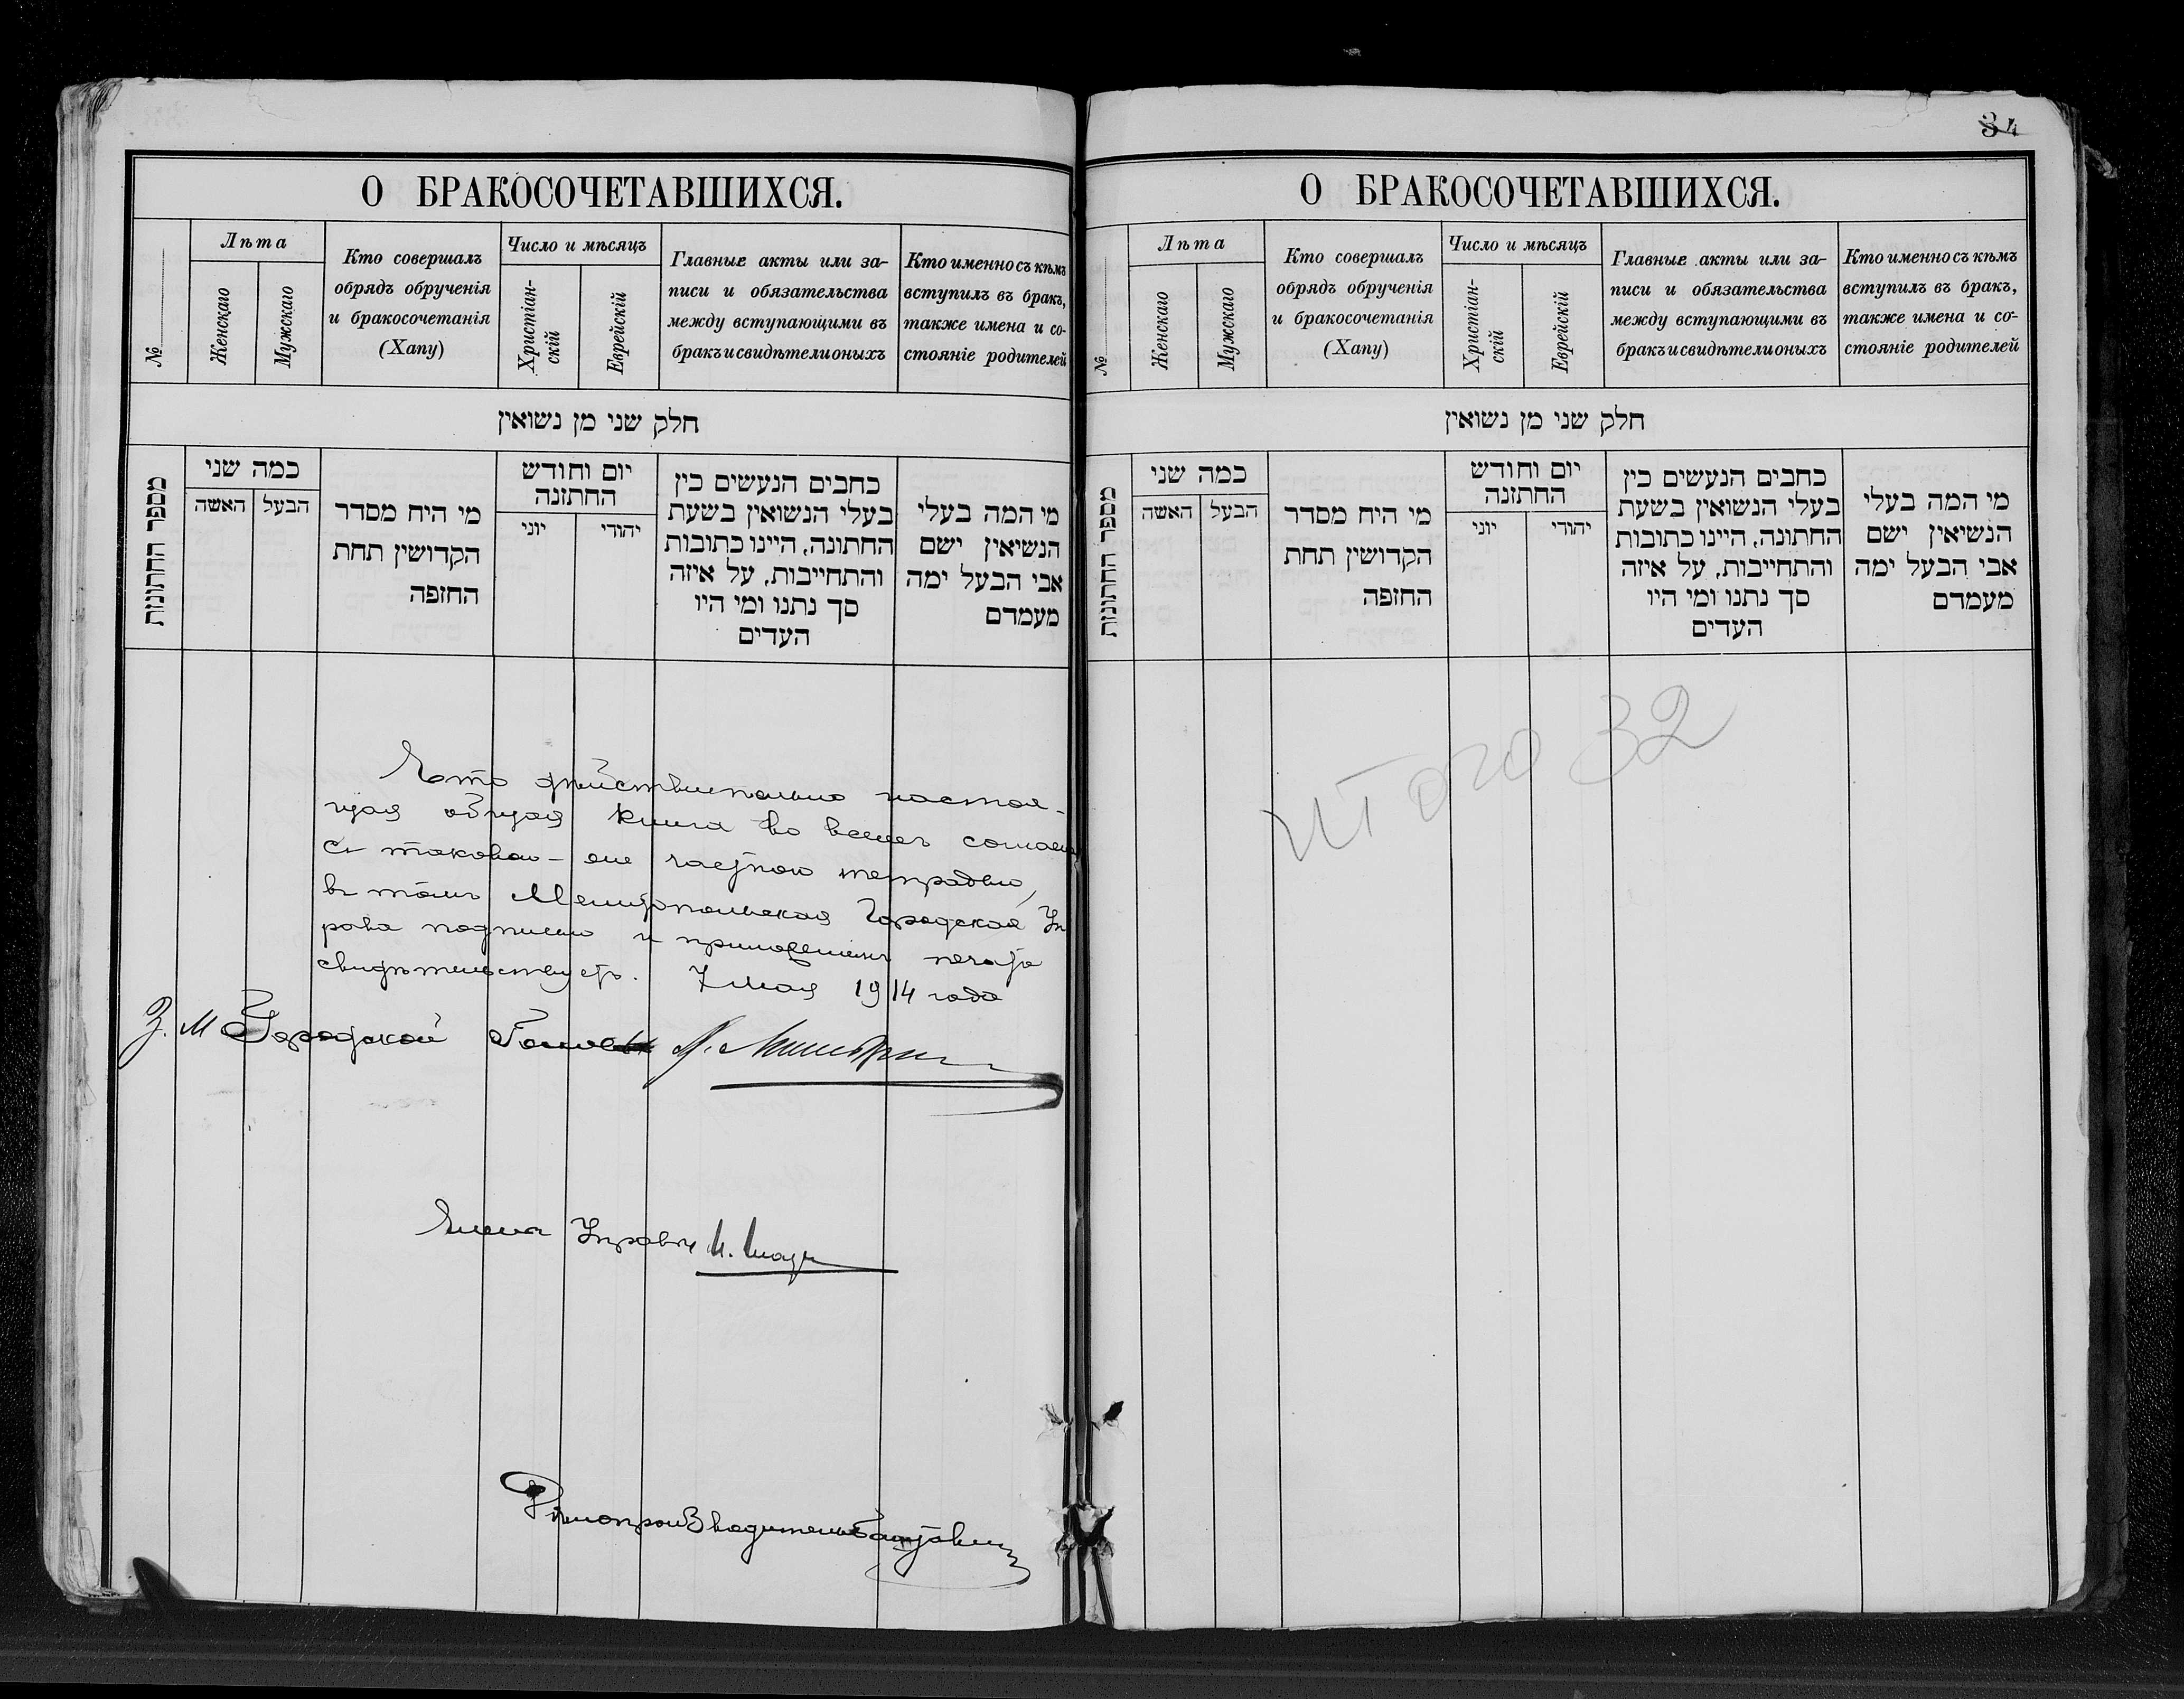 О БРАКОСОЧЕТАВШИХСЯ.
№
Лѣта
Женскаго
Мужскаго
Кто совершалъ
обрядъ обрученія
и бракосочетанія
(Хапу)
Число и мѣсяцъ
Христіан-
скій
Еврейскій
Главные акты или за-
писи и обязательства
между вступающими въ
бракъ и свидѣтели оныхъ
Кто именно съ кѣмъ
вступилъ въ бракъ,
также имена и со-
стояніе родителей
חלק שני מן נשואין
מספר החתונות
כמה שני
האשה
הבעל
מי היח מסדר
הקדושין תחת
החזפה
יום וחודש
החתזנה
יוני
יהודי
כחבים הנעשים כין
בעלי הנשואין בשעת
החתונה, היינו כתובות
והתחייבות, על איזה
סך נתנו ומי היו
העדים
מי המה בעלי
הנשיאין ישם
אבי הבעל ימה
מעמדם
Что дѣйствительно настоя-
щая общая книга во всемъ согласна
съ таковою-же частною тетрадью,
въ томъ Мелитопольская Городская Уп
рава подписью и приложеніемъ печати
свидѣтельствуетъ. 7 Мая 1914 года
З. М Городской Голова
Члена Управы
Дѣлопроизводитель
34
О БРАКОСОЧЕТАВШИХСЯ.
№
Лѣта
Женскаго
Мужскаго
Кто совершалъ
обрядъ обрученія
и бракосочетанія
(Хапу)
Число и мѣсяцъ
Христіан-
скій
Еврейскій
Главные акты или за-
писи и обязательства
между вступающими въ
бракъ и свидѣтели оныхъ
Кто именно съ кѣмъ
вступилъ въ бракъ,
также имена и со-
стояніе родителей
חלק שני מן נשואין
מספר החתונות
כמה שני
האשה
הבעל
מי היח מסדר
הקדושין תחת
החזפה
יום וחודש
החתזנה
יוני
יהודי
כחבים הנעשים כין
בעלי הנשואין בשעת
החתונה, היינו כתובות
והתחייבות, על איזה
סך נתנו ומי היו
העדים
מי המה בעלי
הנשיאין ישם
אבי הבעל ימה
מעמדם
Итого 32